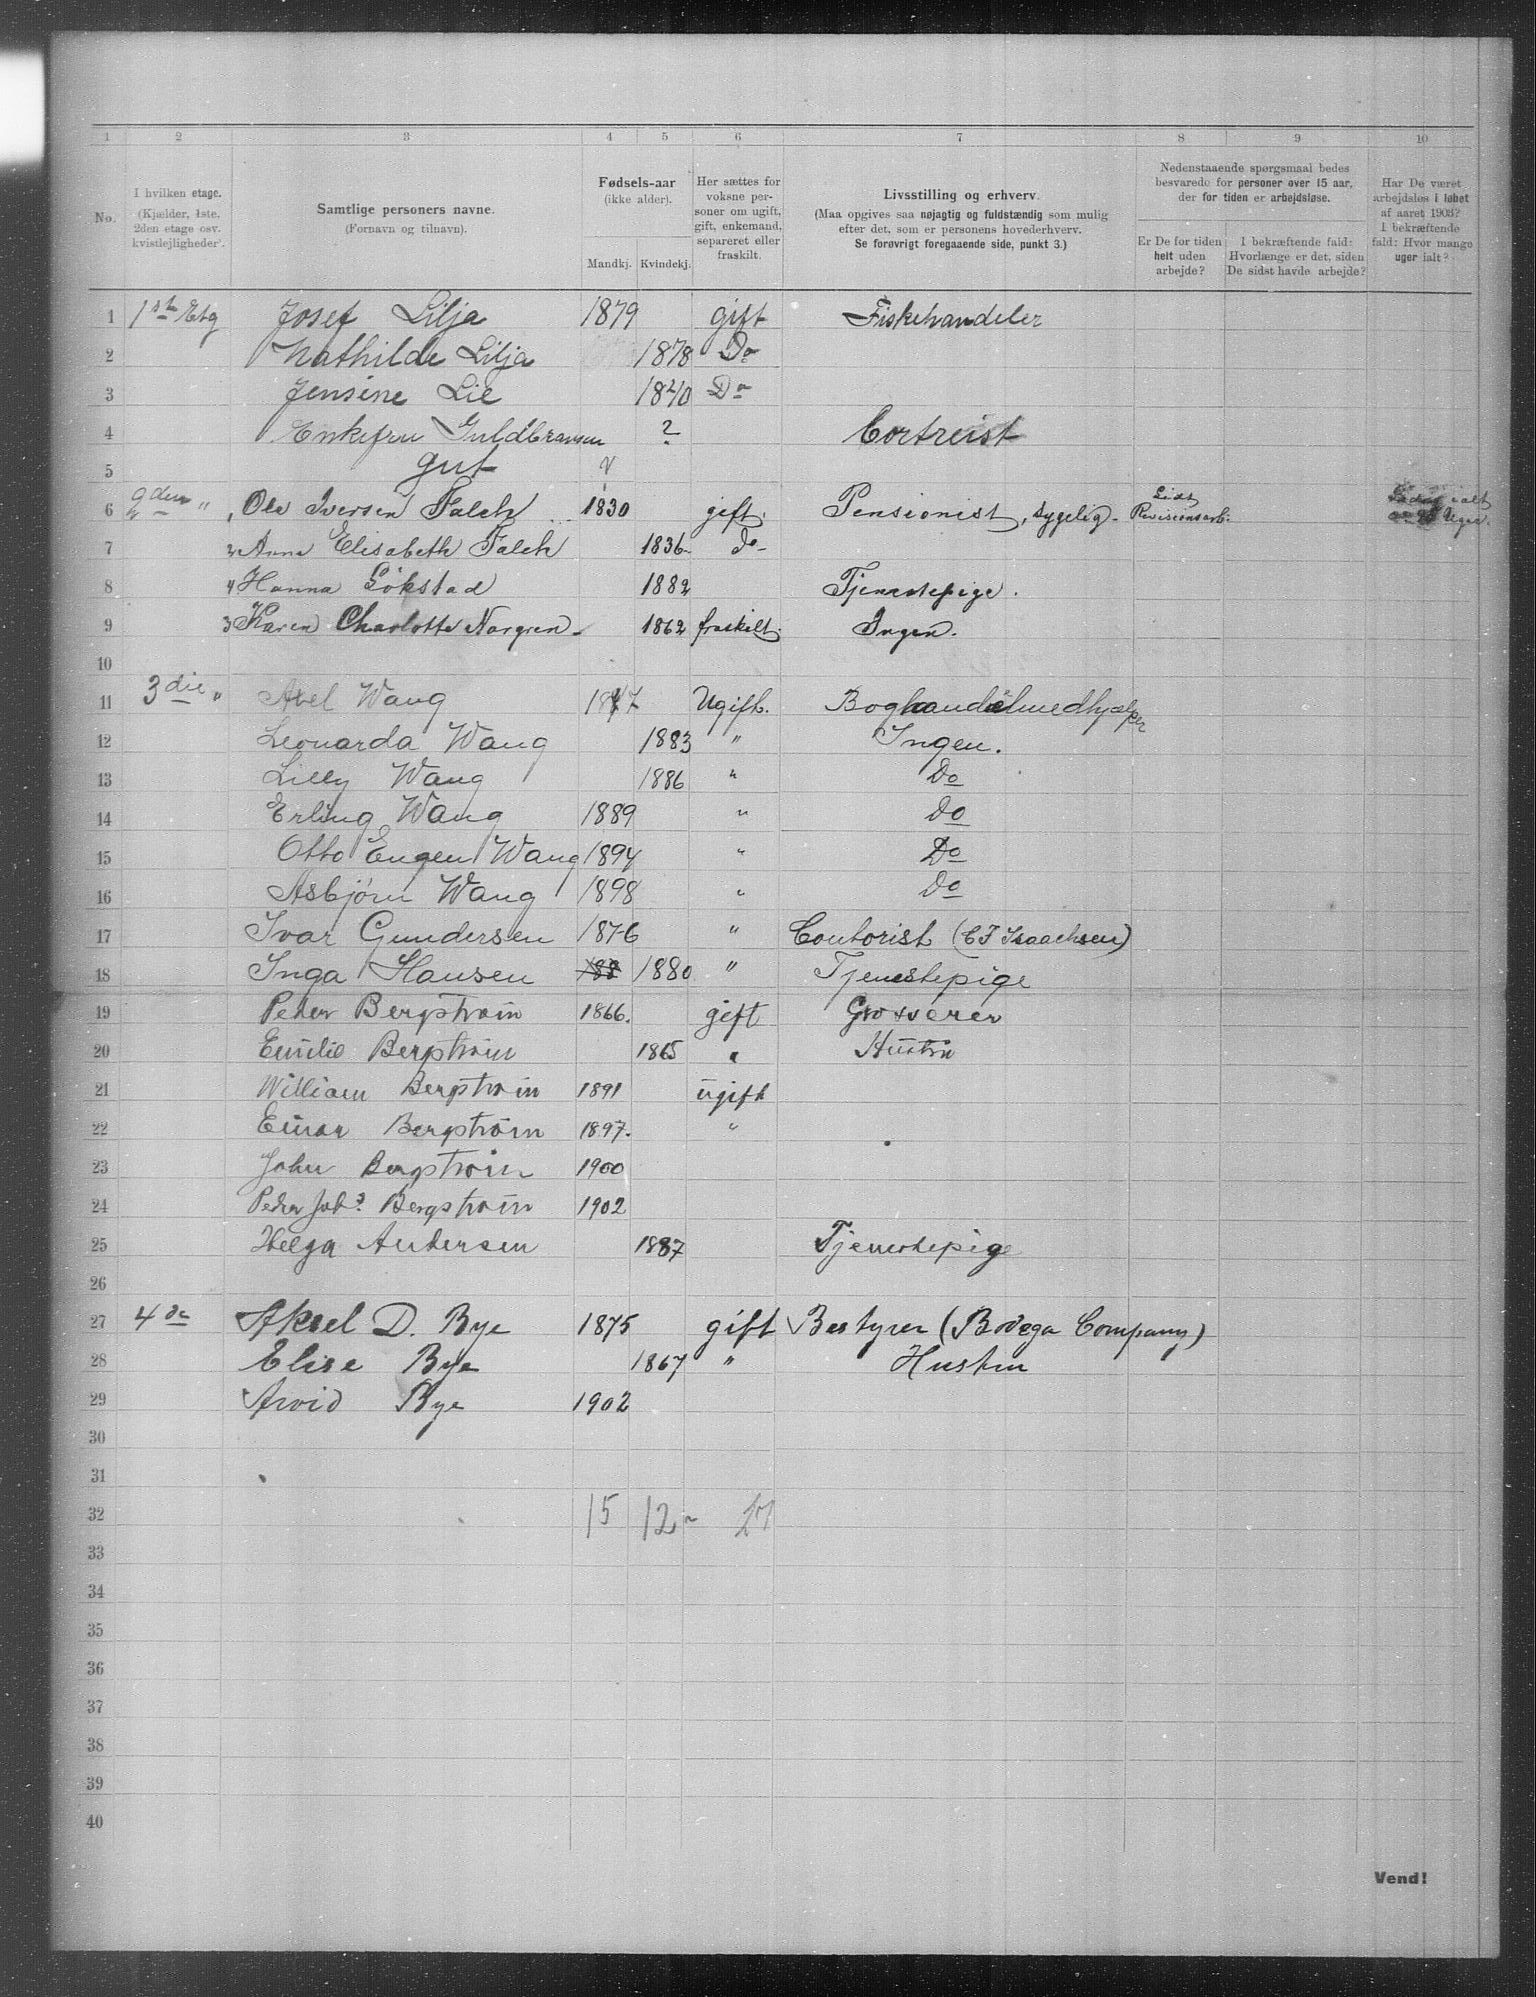 1 2 3 4 5 6 7 8 9 10
No.
I hvilken etage.
(Kjælder, 1ste,
2den etage osv.
kvistlejligheder).
Samtlige personers navne.
(Fornavn og tilnavn).
Fødsels-aar
(ikke alder).
Mandkj. Kvindekj.
Her sættes for
voksne per-
soner om ugift,
gift, enkemand,
separeret eller
fraskilt.
Livsstilling og erhverv.
(Maa opgives saa nøjagtig og fuldstændig som mulig
efter det, som er personens hovederhverv.
Se forøvrigt foregaaende side, punkt 3.)
Nedenstaaende spørgsmaal bedes
besvarede for personer over 15 aar,
der for tiden er arbejdsløse.
Er De for tiden
helt uden
arbejde?
I bekræftende fald:
Hvorlænge er det, siden
De sidst havde arbejde?
Har De været
arbejdsløs i løbet
af aaret 1903?
I bekræftende
fald: Hvor mange
uger ialt?
1 1ste Etg Josef Lilja 1879 gift Fiskehandeler
2 Mathilde Lilja 1878 Do
3 Jensine Lie 18 Do
4 Enkefru Guldbransen ? Bortreist
5 gut
6 2den " Ole Iversen Falch 1830 gift. Pensionist, sygelig. Sidst Revisionsarb. ialt Uger.
7 2 Anna Elisabeth Falch 1836 do
8 4 Hanna Gökstad 1882 Tjenestepige.
9 3 Karen Charlotte Norgren 1862 fraskilt. Ingen.
10
11 3die " Axel Wang 18 7 Ugift. Boghandelmedhjælper
12 Leonarda Wang 1883 " Ingen.
13 Lilly Wang 1886 " Do
14 Erling Wang 1889 " Do
15 Otto Eugen Wang 1894 " Do
16 Asbjørn Wang 1898 " Do
17 Ivar Gundersen 1876 " Contorist (C F Isaachsen)
18 Inga Hansen 188 1880 " Tjenestepige
19 Peder Bergström 1866. gift Grosserer
20 Emilie Bergström 1865 " Hustru
21 William Bergström 1891 ugift
22 Einar Bergström 1897. "
23 John Bergström 1900
24 Peder Joh. Bergström 1902
25 Helga Andersen 1887 Tjenestepige
26
27 4de Aksel D. Bye 1875 gift Bestyrer (Bodega Company)
28 Elise Bye 1867 " Hustru
29 Arvid Bye 1902
30
31
32 15 12 27
33
34
35
36
37
38
39
40
Vend!